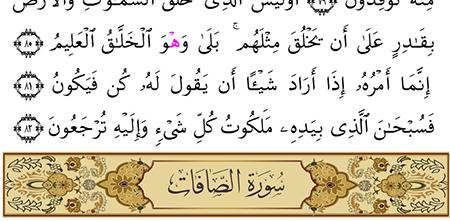 مِنْهُ تُوقِدُونَ ﴿٨٠﴾ أَوَلَيْسَ ٱلَّذِى خَلَقَ ٱلسَّمَٰوَٰتِ وَٱلْأَرْضَ
بِقَٰدِرٍ عَلَىٰٓ أَن يَخْلُقَ مِثْلَهُم ۚ بَلَىٰ وَهُوَ ٱلْخَلَّٰقُ ٱلْعَلِيمُ ﴿٨١﴾
إِنَّمَآ أَمْرُهُۥٓ إِذَآ أَرَادَ شَيْـًٔا أَن يَقُولَ لَهُۥ كُن فَيَكُونُ ﴿٨٢﴾
فَسُبْحَٰنَ ٱلَّذِى بِيَدِهِۦ مَلَكُوتُ كُلِّ شَىْءٍ وَإِلَيْهِ تُرْجَعُونَ ﴿٨٣﴾
سُورَةُ الصَّافَات